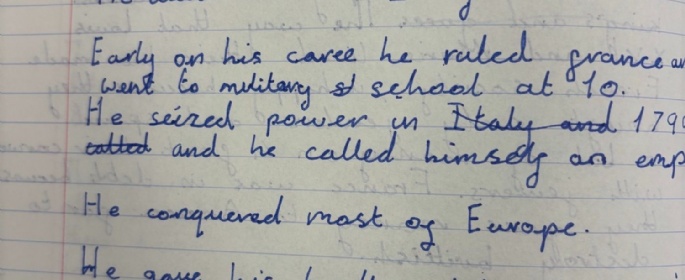 Early on his caree he ruled france an
went to military school at 10.
He seized power in Italy and 179
called and he called himself an emp
He conquered most of Europe.
He gave his